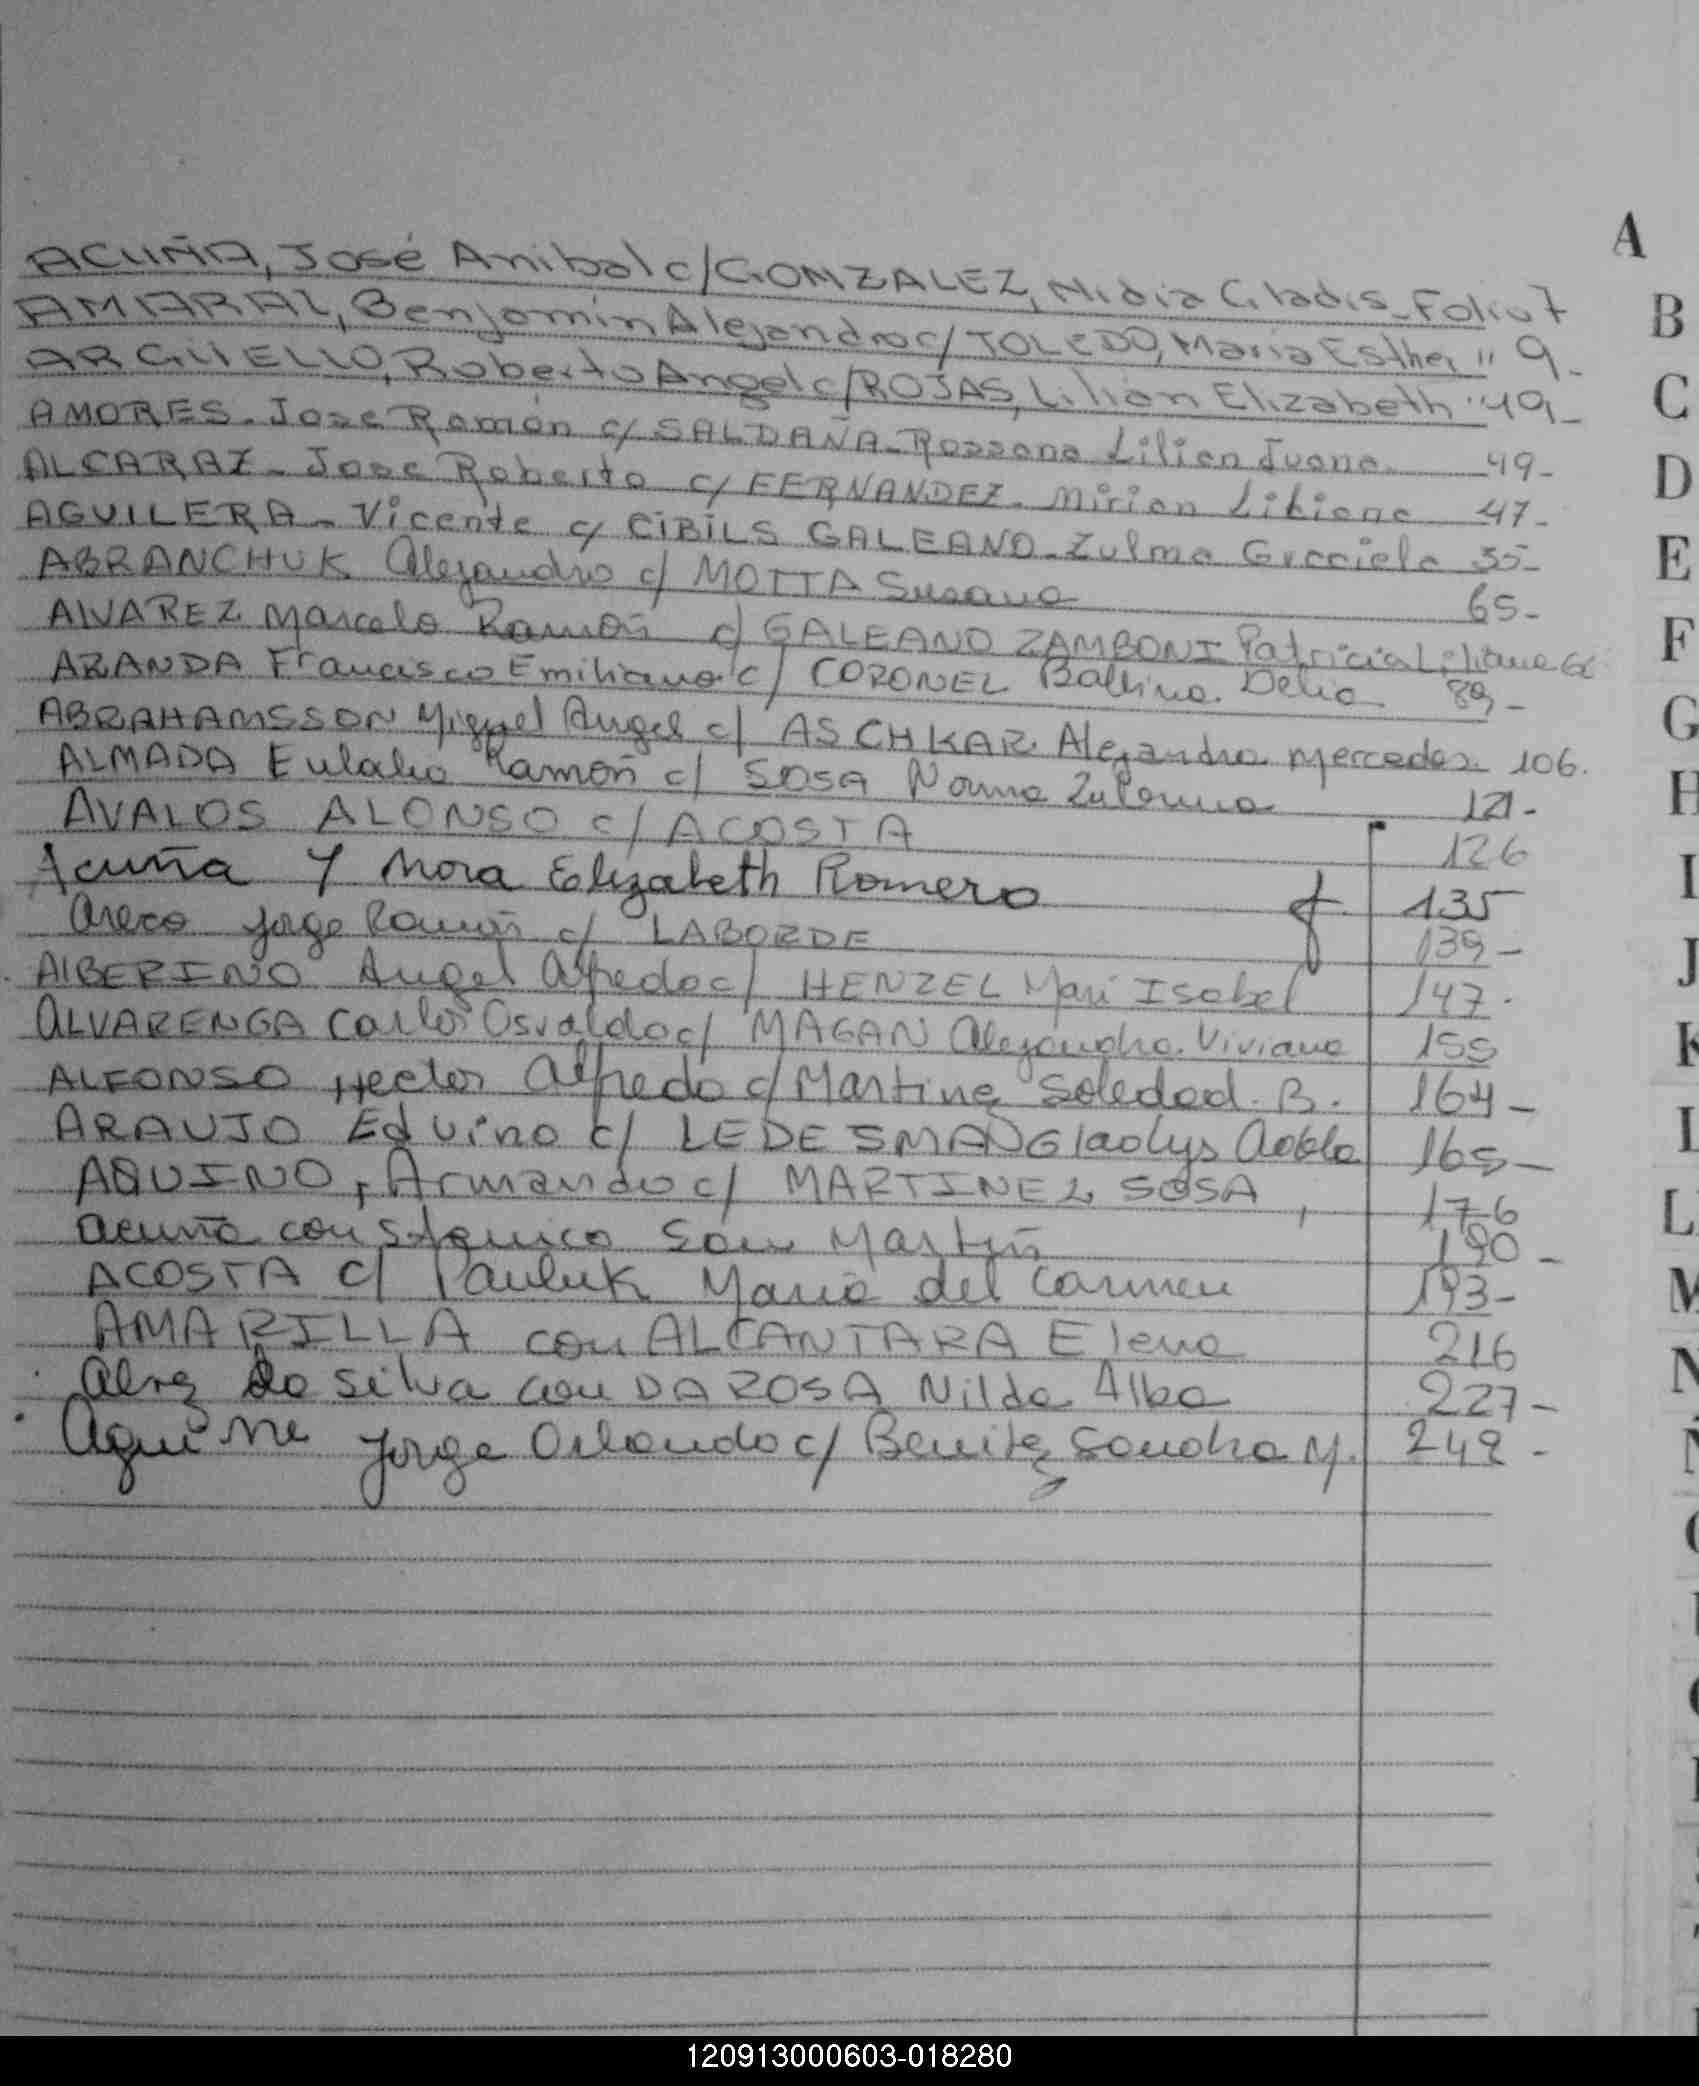 ACUÑA, José Anibal c/GONZALEZ, Nidia Gladis - Folio 7
AMARAL, Benjamín Alejandro c/ TOLEDO, María Esther " 9.
ARGÜELLO, Roberto Angel c/ROJAS, Lilian Elizabeth " 49-
AMORES - Jose Ramón c/ SALDAÑA - Rossana Lilian Juana 49-
ALCARAZ - Jose Roberto c/ FERNANDEZ - Mirian Liliana 47-
AGUILERA - Vicente c/ CIBILS GALEANO - Zulma Graciela 35-
ABRANCHUK Alejandro c/ MOTTA Susana 65-
ALVAREZ Marcelo Ramón c/ GALEANO ZAMBONI Patricia Liliana
ARANDA Francisco Emiliano c/ CORONEL Balbina Delia 89-
ABRAHAMSSON Miguel Angel c/ ASCHKAR Alejandra Mercedes 106.
ALMADA Eulalio Ramón c/ SOSA Norma Zulema 121-
AVALOS ALONSO c/ ACOSTA 126
Acuña Y Nora Elizabeth Romero 135
Areco Jorge Ramón c/ LABORDE 139-
ALBERINO Angel Alfredo c/ HENZEL Mari Isabel 147.
ALVARENGA Carlos Osvaldo c/ MAGAN Alejandra Viviana 155
ALFONSO Hector Alfredo c/ Martinez Soledad B. 164-
ARAUJO Edvino c/ LEDESMAN Gladys 165-
AQUINO, Armando c/ MARTINEZ SOSA, 176
Acuña con San Martín 190-
ACOSTA c/ Pauluk Maria del Carmen 193-
AMARILLA con ALCANTARA Elena 216
Alvez Da Silva con DA ROSA Nilda Alba 227-
Jorge Orlando c/ Benitez Sandra M. 242-
A
B
C
D
E
F
G
H
I
J
K
L
LL
M
N
120913000603-018280